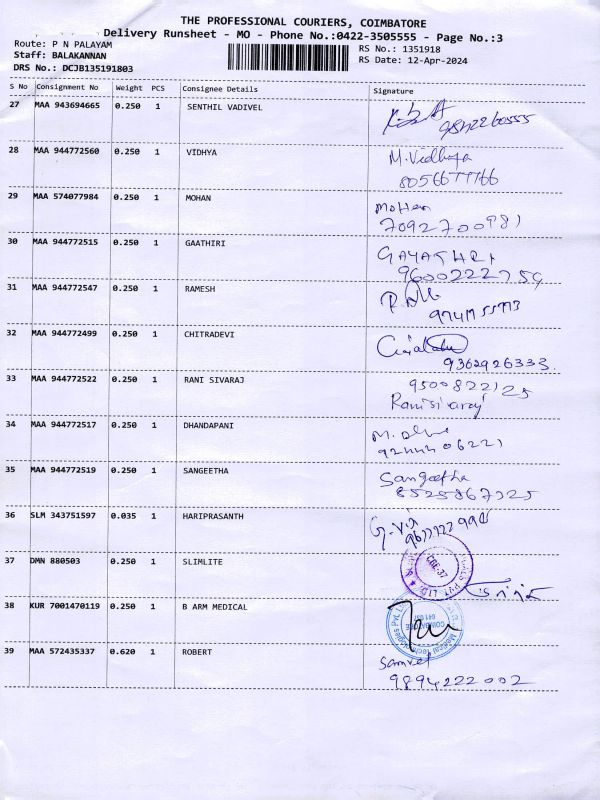 THE PROFESSIONAL COURIERS, COIMBATORE
Delivery Runsheet - MO - Phone No.:0422-3505555 - Page No.:3
Route: P N PALAYAM RS No.: 1351918
Staff: BALAKANNAN RS Date: 12-Apr-2024
DRS No.: DCJB135191803
S No Consignment No Weight PCS Consignee Details Signature
27 MAA 943694665 0.250 1 SENTHIL VADIVEL
9842260555
28 MAA 944772560 0.250 1 VIDHYA M.Vidhya
8056677766
29 MAA 574077984 0.250 1 MOHAN Mohan
7092700981
30 MAA 944772515 0.250 1 GAATHIRI GAYATHRI
9600222754
31 MAA 944772547 0.250 1 RAMESH
32 MAA 944772499 0.250 1 CHITRADEVI
9362926333.
33 MAA 944772522 0.250 1 RANI SIVARAJ 9500822125
Ranisivaraj
34 MAA 944772517 0.250 1 DHANDAPANI
9244406221
35 MAA 944772519 0.250 1 SANGEETHA Sangeetha
8525867325
36 SLM 343751597 0.035 1 HARIPRASANTH
37 DMN 880503 0.250 1 SLIMLITE
CBE-37
38 KUR 7001470119 0.250 1 B ARM MEDICAL
COIMBATORE
641 037
Medical Technologies Pvt. L
39 MAA 572435337 0.620 1 ROBERT Samvel
9894222002